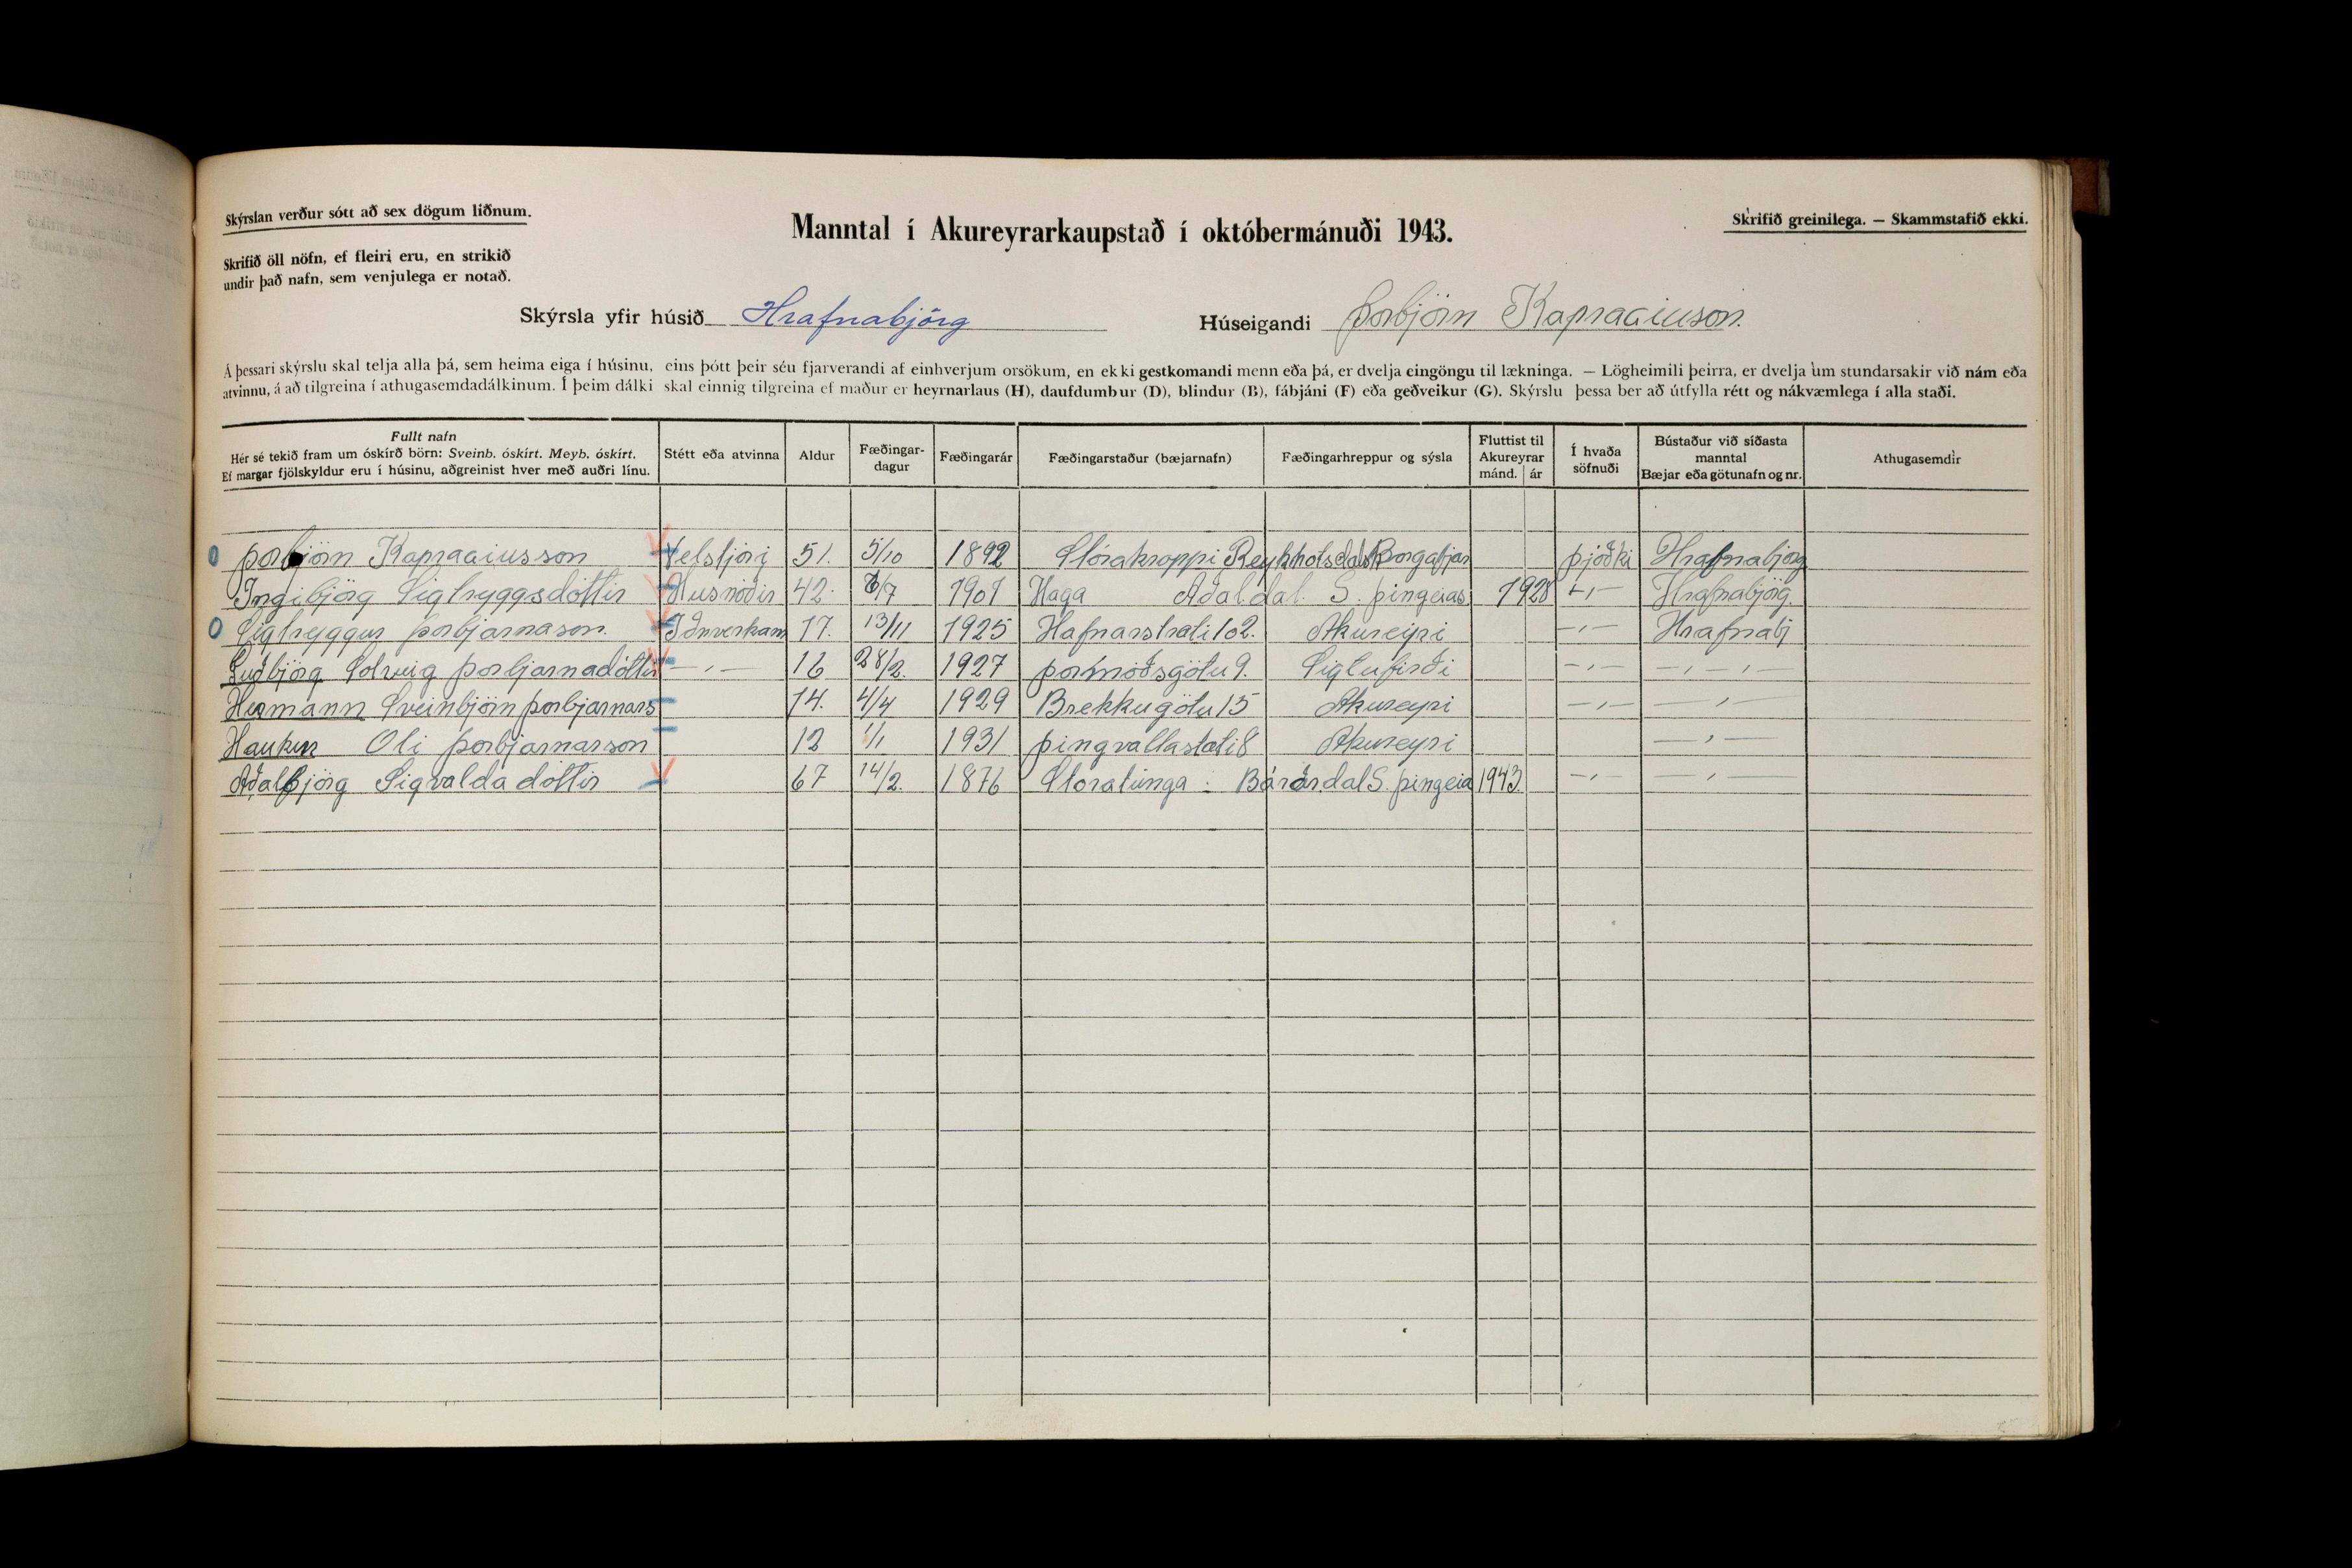 Skýrslan verður sótt að sex dögum liðnum.
Manntal í Akureyrarkaupstað í októbermánuði 1943.
Skrifið greinilega. — Skammstafið ekki.
Skrifið öll nöfn, ef fleiri eru, en strikið
undir það nafn, sem venjulega er notað.
Skýrsla yfir húsið Hrafnabjörg Húseigandi Þorbjörn Kapraciuson.
Á þessari skýrslu skal telja alla þá, sem heima eiga í húsinu, eins þótt þeir séu fjarverandi af einhverjum orsökum, en ekki gestkomandi menn eða þá, er dvelja eingöngu til lækninga. — Lögheimili þeirra, er dvelja um stundarsakir við nám eða
atvinnu, á að tilgreina í athugasemdadálkinum. Í þeim dálki skal einnig tilgreina ef maður er heyrnarlaus (H), daufdumbur (D), blindur (B), fábjáni (F) eða geðveikur (G). Skýrslu þessa ber að útfylla rétt og nákvæmlega í alla staði.
Fullt nafn
Hér sé tekið fram um óskírð börn: Sveinb. óskírt. Meyb. óskírt.
Ef margar fjölskyldur eru í húsinu, aðgreinist hver með auðri línu.
Stétt eða atvinna
Aldur
Fæðingar-
dagur
Fæðingarár
Fæðingarstaður (bæjarnafn)
Fæðingarhreppur og sýsla
Fluttist til
Akureyrar
mánd. ár
Í hvaða
söfnuði
Bústaður við síðasta
manntal
Bæjar eða götunafn og nr.
Athugasemdir
Þorbjörn Kapraciusson Velstjóri 51. 5/10 1892 Stórakroppi Reykholtsdalsh Borgafjar þjóðki Hrafnabjörg
Ingibjörg Sigtryggsdóttir Husmóðir 42. /7 1901 Haga Aðaldal. S. þingeias. 1928 -,- Hrafnabjörg.
Sigtryggur Þorbjarnason. Iðnverkam 17. 13/11 1925 Hafnarstræti 102. Akureyri -,- Hrafnabj
Guðbjörg Solveig Þorbjarnadóttir -,- 16 28/2. 1927 þormóðsgötu 9. Siglufirði -,- -,-,-
Hermann Sveinbjörn Þorbjarnars 14. 4/4 1929 Brekkugötu 15 Akureyri -,- -,-
Haukur Oli Þorbjarnarson 12 1/1 1931 þingvallastæti 8 Akureyri -,-
Aðalbjörg Sigvaldadóttir 67 14/2. 1876 Storatunga : Bárðardal S. þingeia 1943. -,- -,-